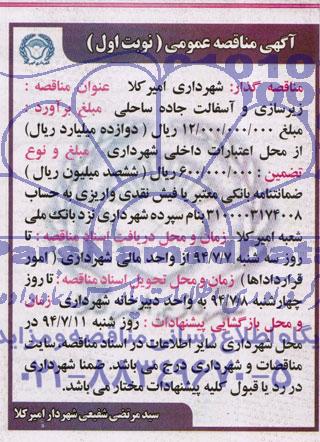 آگهی مناقصه عمومی ( نوبت اول )
مناقصه گذار: شهرداری امیرکلا عنوان مناقصه :
زیرسازی و آسفالت جاده ساحلی مبلغ برآورد :
مبلغ ۱۲/۰۰۰/۰۰۰/۰۰۰ ریال ( دوازده میلیارد ریال)
از محل اعتبارات داخلی شهرداری مبلغ و نوع
تضمین : ۶۰۰/۰۰۰/۰۰۰ ریال ( ششصد میلیون ریال )
ضمانتنامه بانکی معتبر یا فیش نقدی واریزی به حساب
۳۱۰۰۰۰۳۱۷۴۰۰۸ بنام سپرده شهرداری نزد بانک ملی
شعبه امیرکلا زمان و محل دریافت اسناد مناقصه : تا
روز سه شنبه ۹۴/۷/۷ از واحد مالی شهرداری ( امور
قراردادها ) زمان و محل تحویل اسناد مناقصه : تا روز
چهارشنبه ۹۴/۷/۸ به واحد دبیرخانه شهرداری زمان
و محل بازگشایی پیشنهادات : روز شنبه ۹۴/۷/۱۱ در
محل شهرداری سایر اطلاعات در اسناد مناقصه سایت
مناقصات و شهرداری درج می باشد. ضمنا شهرداری
در رد یا قبول کلیه پیشنهادات مختار می باشد.
سید مرتضی شفیعی شهردار امیرکلا